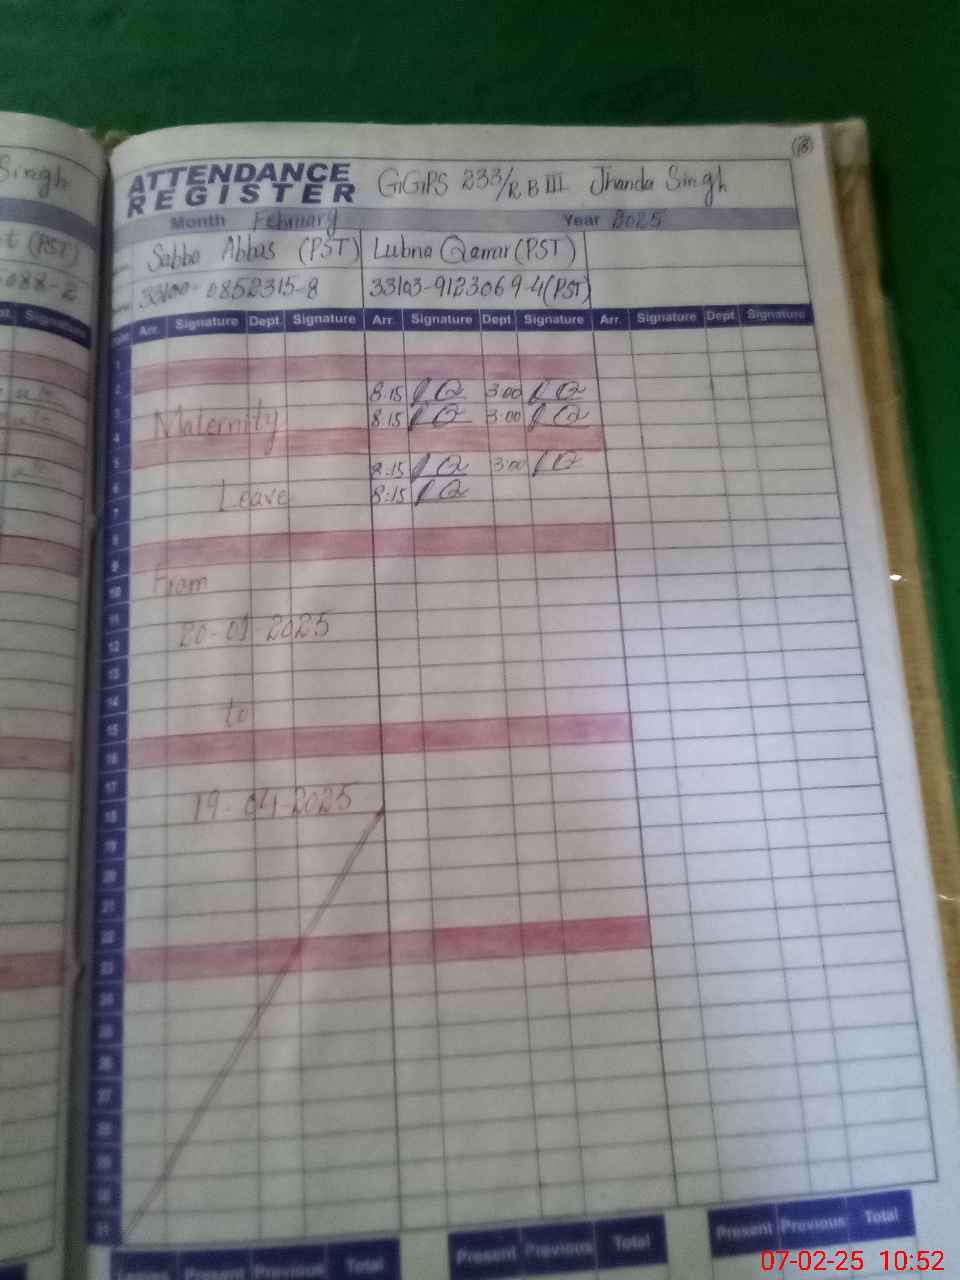 Singh
ATTENDANCE
REGISTER
GGPS 233/R B III Jhanda Singh
18
Month February Year 2025
t (PST)
Sabba Abbas (PST) Lubna Qamar (PST)
088-2
33100-0852315-8 33103-9123069-4(PST)
Signature
Arr. Signature Dept. Signature Arr. Signature Dept Signature Arr. Signature Dept. Signature
1
2 8:15 LQ 3:00 LQ
3 Maternity 8:15 LQ 3:00 LQ
4
5 8:15 LQ 3:00 LQ
6 Leave 8:15 LQ
7
8
9
10 From
11
12 20-01-2025
13
14
15 to
16
17
18 19-04-2025
19
20
21
22
23
24
25
26
27
28
29
30
31
Present Previous Total Present Previous Total Present Previous Total
07-02-25 10:52